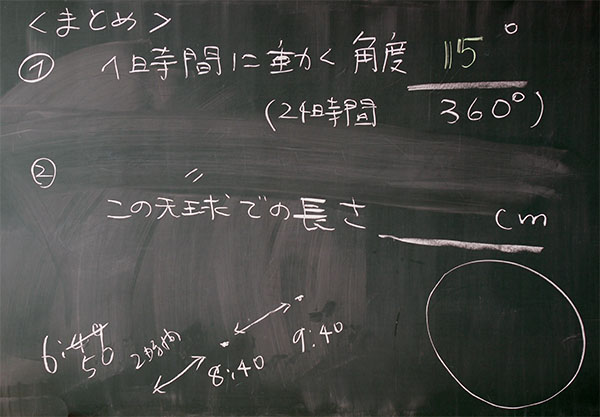 <まとめ>
① 1時間に動く角度 115°
(24時間 360°)
② 〃
この天球での長さ cm
9:40
6:50 8:40